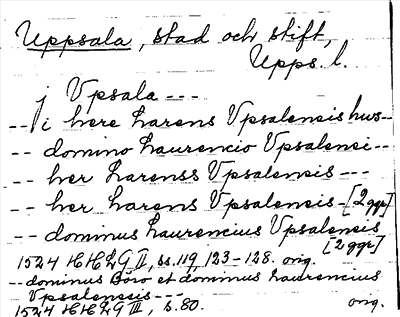 Uppsala, stad och stift,
Upps. l.
j Vpsala ---
-- i here Larens Vpsalensis hus --
-- domino Laurencio Vpsalensi --
-- her Larenss Vpsalensis ---
-- her Larens Vpsalensis - [2 ggr]
-- dominus Laurencius Vpsalensis
[2 ggr]
1524 HHLG II, ss. 119, 123-128. orig.
-- dominus Boro et dominus Laurencius
Vpsalensis ---
1524 HHLG III, s. 80. orig.